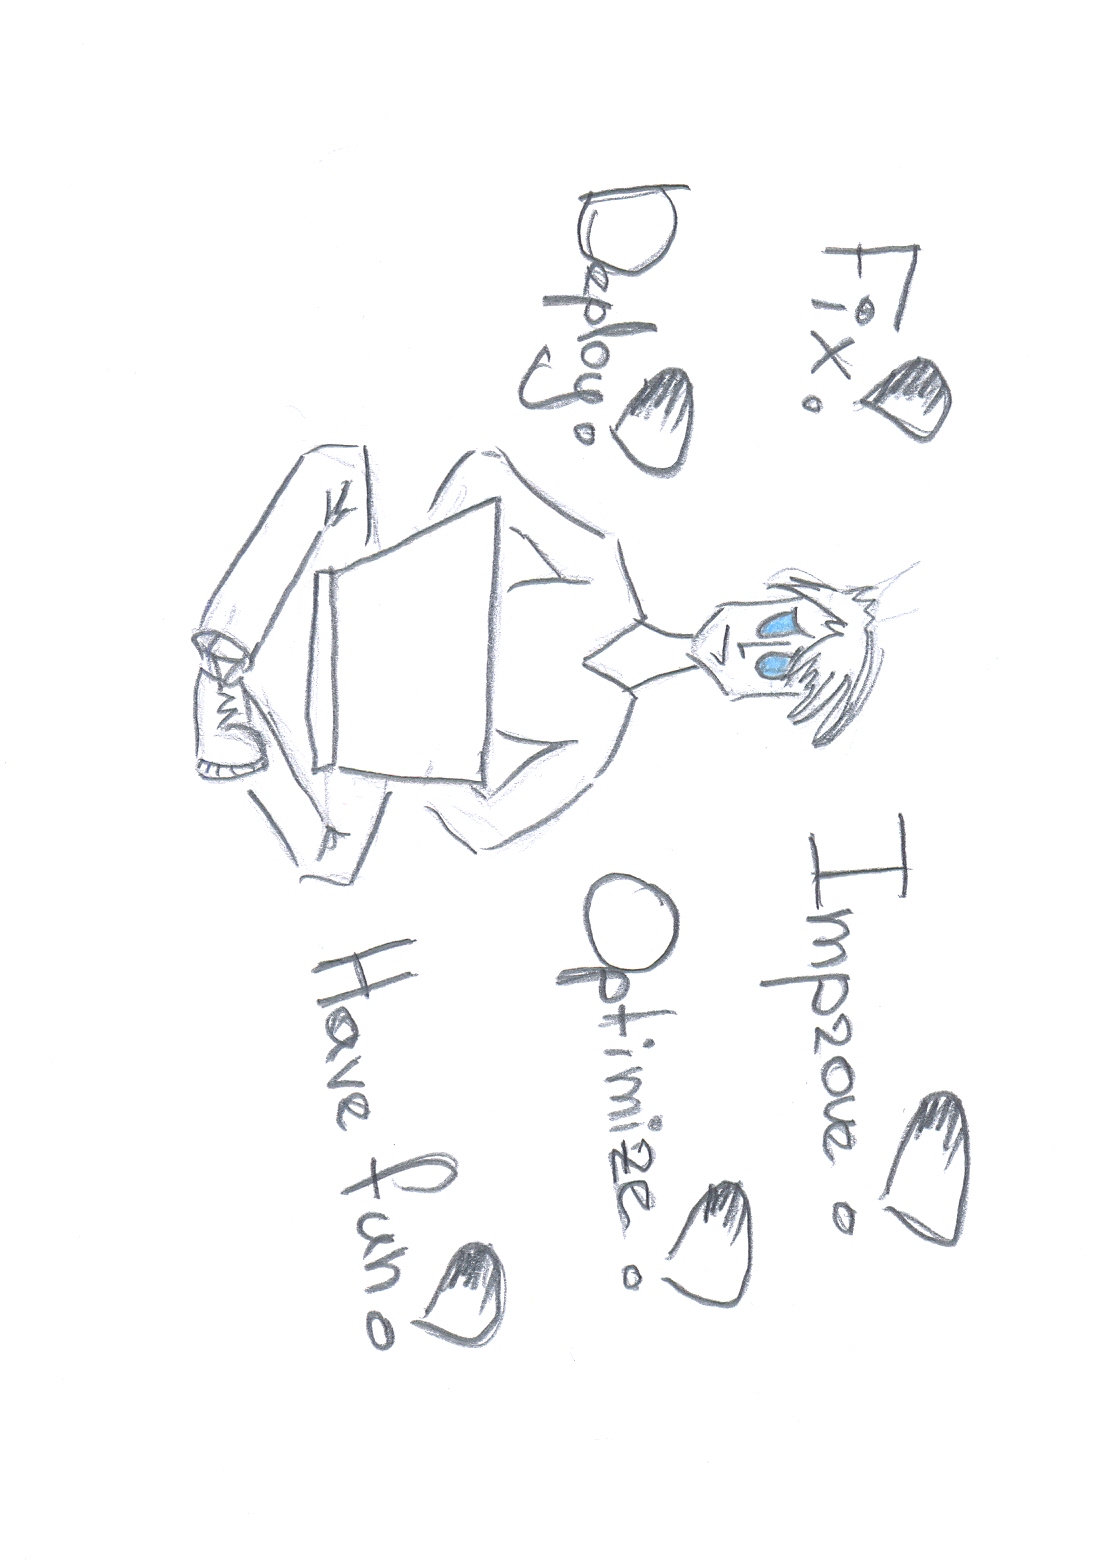 Fix!
Deploy!
Improve!
Optimize!
Have fun!